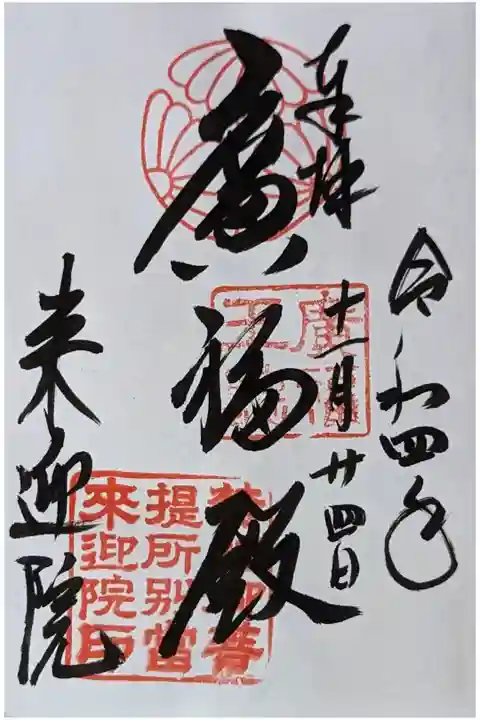 令和四年
十一月廿四日
奉拝
廣福殿
来迎院
提所別當
來迎院印